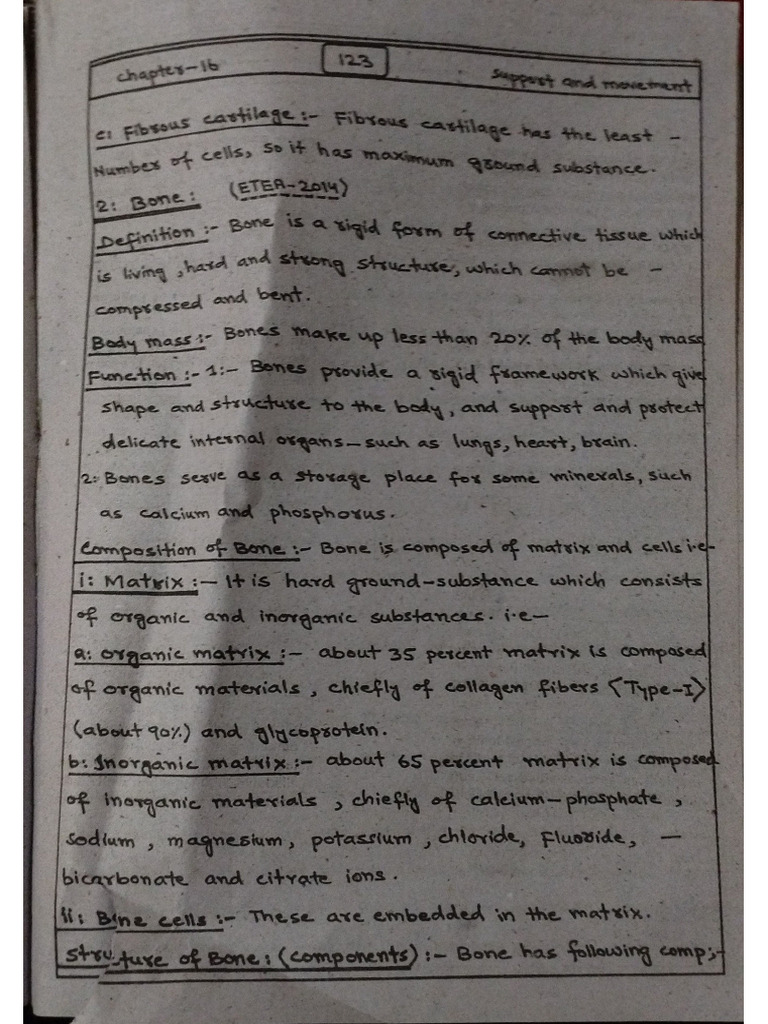 chapter-16 123 Support and movement
c: Fibrous cartilage :- Fibrous cartilage has the least -
Number of cells, so it has maximum ground substance.
2: Bone: (ETEA-2014)
Definition :- Bone is a rigid form of connective tissue which
is living, hard and strong structure, which cannot be -
compressed and bent.
Body mass :- Bones make up less than 20% of the body mass
Function :- 1:- Bones provide a rigid framework which give
shape and structure to the body, and support and protect
delicate internal organs - such as lungs, heart, brain.
2: Bones serve as a storage place for some minerals, such
as calcium and phosphorus.
Composition of Bone :- Bone is composed of matrix and cells i.e-
i: Matrix :- It is hard ground-substance which consists
of organic and inorganic substances. i.e-
a: organic matrix :- about 35 percent matrix is composed
of organic materials, chiefly of collagen fibers (Type-I)
(about 90%) and glycoprotein.
b: Inorganic matrix :- about 65 percent matrix is composed
of inorganic materials, chiefly of calcium-phosphate,
sodium, magnesium, potassium, chloride, Fluoride, -
bicarbonate and citrate ions.
ii: Bine cells :- These are embedded in the matrix.
Structure of Bone: (components) :- Bone has following comp;-